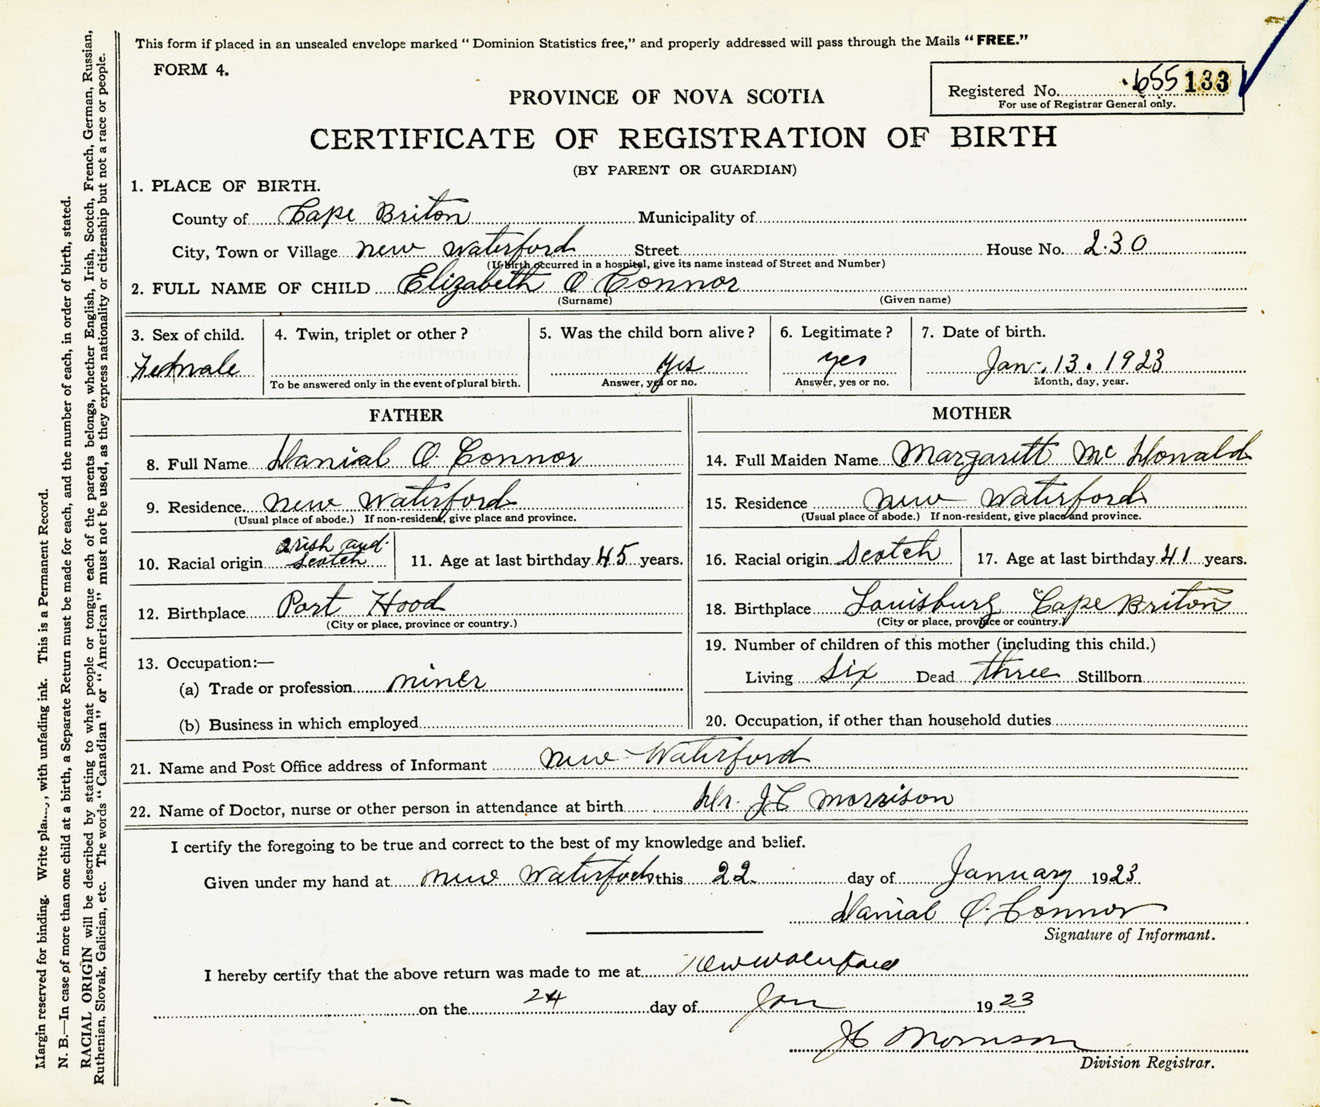 This form if placed in an unsealed envelope marked “ Dominion Statistics free,” and properly addressed will pass through the Mails “ FREE.”
FORM 4.
Registered No. 655133
For use of Registrar General only.
PROVINCE OF NOVA SCOTIA
CERTIFICATE OF REGISTRATION OF BIRTH
(BY PARENT OR GUARDIAN)
1. PLACE OF BIRTH.
County of Cape Briton Municipality of
City, Town or Village new Waterford Street House No. 230
(If birth occurred in a hospital, give its name instead of Street and Number)
2. FULL NAME OF CHILD Elizabeth O Connor
(Surname) (Given name)
3. Sex of child. 4. Twin, triplet or other ? 5. Was the child born alive ? 6. Legitimate ? 7. Date of birth.
Female yes yes Jan. 13. 1923
To be answered only in the event of plural birth. Answer, yes or no. Answer, yes or no. Month, day, year.
FATHER
8. Full Name Danial O. Connor
9. Residence New Waterford
(Usual place of abode.) If non-resident, give place and province.
10. Racial origin irish and scotch 11. Age at last birthday 45 years.
12. Birthplace Port Hood
(City or place, province or country.)
13. Occupation:—
(a) Trade or profession miner
(b) Business in which employed
MOTHER
14. Full Maiden Name Margarett Mc Donald
15. Residence new Waterford
(Usual place of abode.) If non-resident, give place and province.
16. Racial origin Scotch 17. Age at last birthday 41 years.
18. Birthplace Louisburg Cape Briton
(City or place, province or country.)
19. Number of children of this mother (including this child.)
Living Six Dead three Stillborn
20. Occupation, if other than household duties
21. Name and Post Office address of Informant new Waterford
22. Name of Doctor, nurse or other person in attendance at birth Dr. J C Morrison
I certify the foregoing to be true and correct to the best of my knowledge and belief.
Given under my hand at new Waterford this 22 day of January 1923
Danial O. Connor
Signature of Informant.
I hereby certify that the above return was made to me at New Waterford
on the 24 day of Jan 1923
JC Morrison
Division Registrar.
Margin reserved for binding. Write , with unfading ink. This is a Permanent Record.
N. B.—In case of more than one child at a birth, a Separate Return must be made for each, and the number of each, in order of birth, stated.
RACIAL ORIGIN will be described by stating to what people or tongue each of the parents belongs, whether English, Irish, Scotch, French, German, Russian,
Ruthenian, Slovak, Galician, etc. The words “ Canadian ” or “ American ” must not be used, as they express nationality or citizenship but not a race or people.